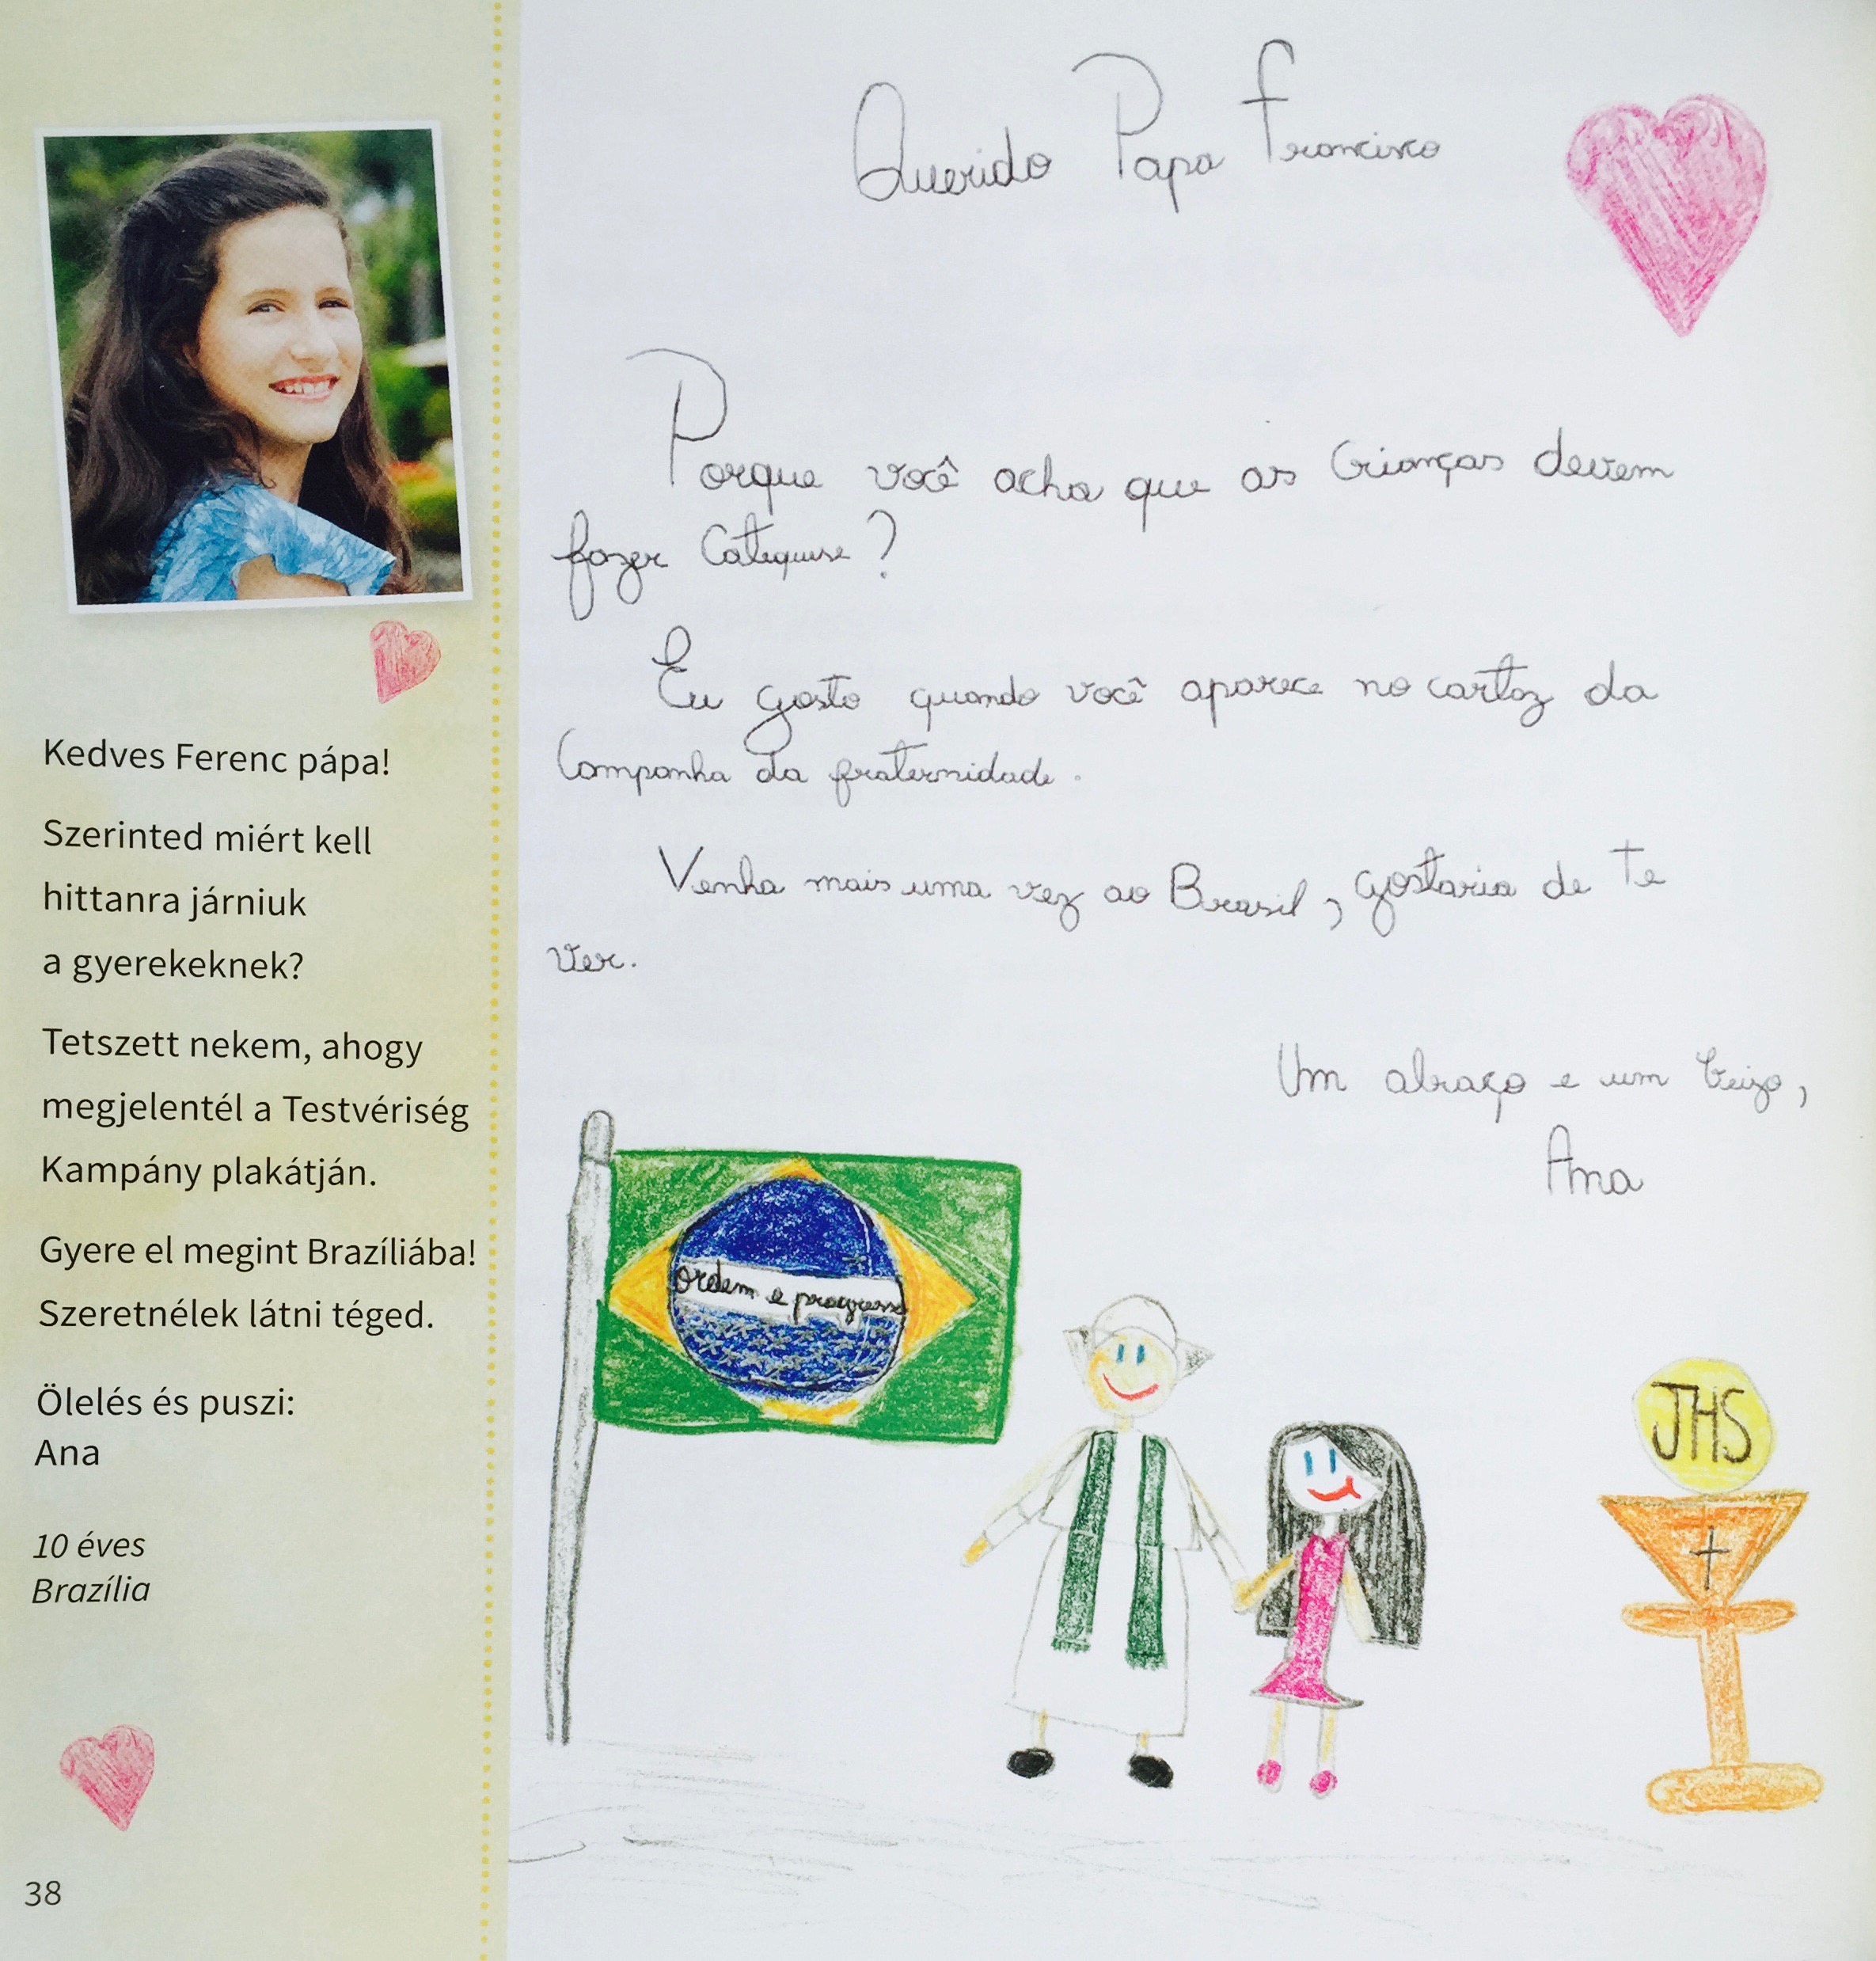 Kedves Ferenc pápa!
Szerinted miért kell
hittanra járniuk
a gyerekeknek?
Tetszett nekem, ahogy
megjelentél a Testvériség
Kampány plakátján.
Gyere el megint Brazíliába!
Szeretnélek látni téged.
Ölelés és puszi:
Ana
10 éves
Brazília
38
Querido Papa Francisco
Porque você acha que as Crianças devem
fazer Catequese?
Eu gosto quando você aparece no cartaz da
Companha da fraternidade.
Venha mais uma vez ao Brasil, gostaria de te
ver.
Um abraço e um beijo,
Ana
ordem e progresso
JHS